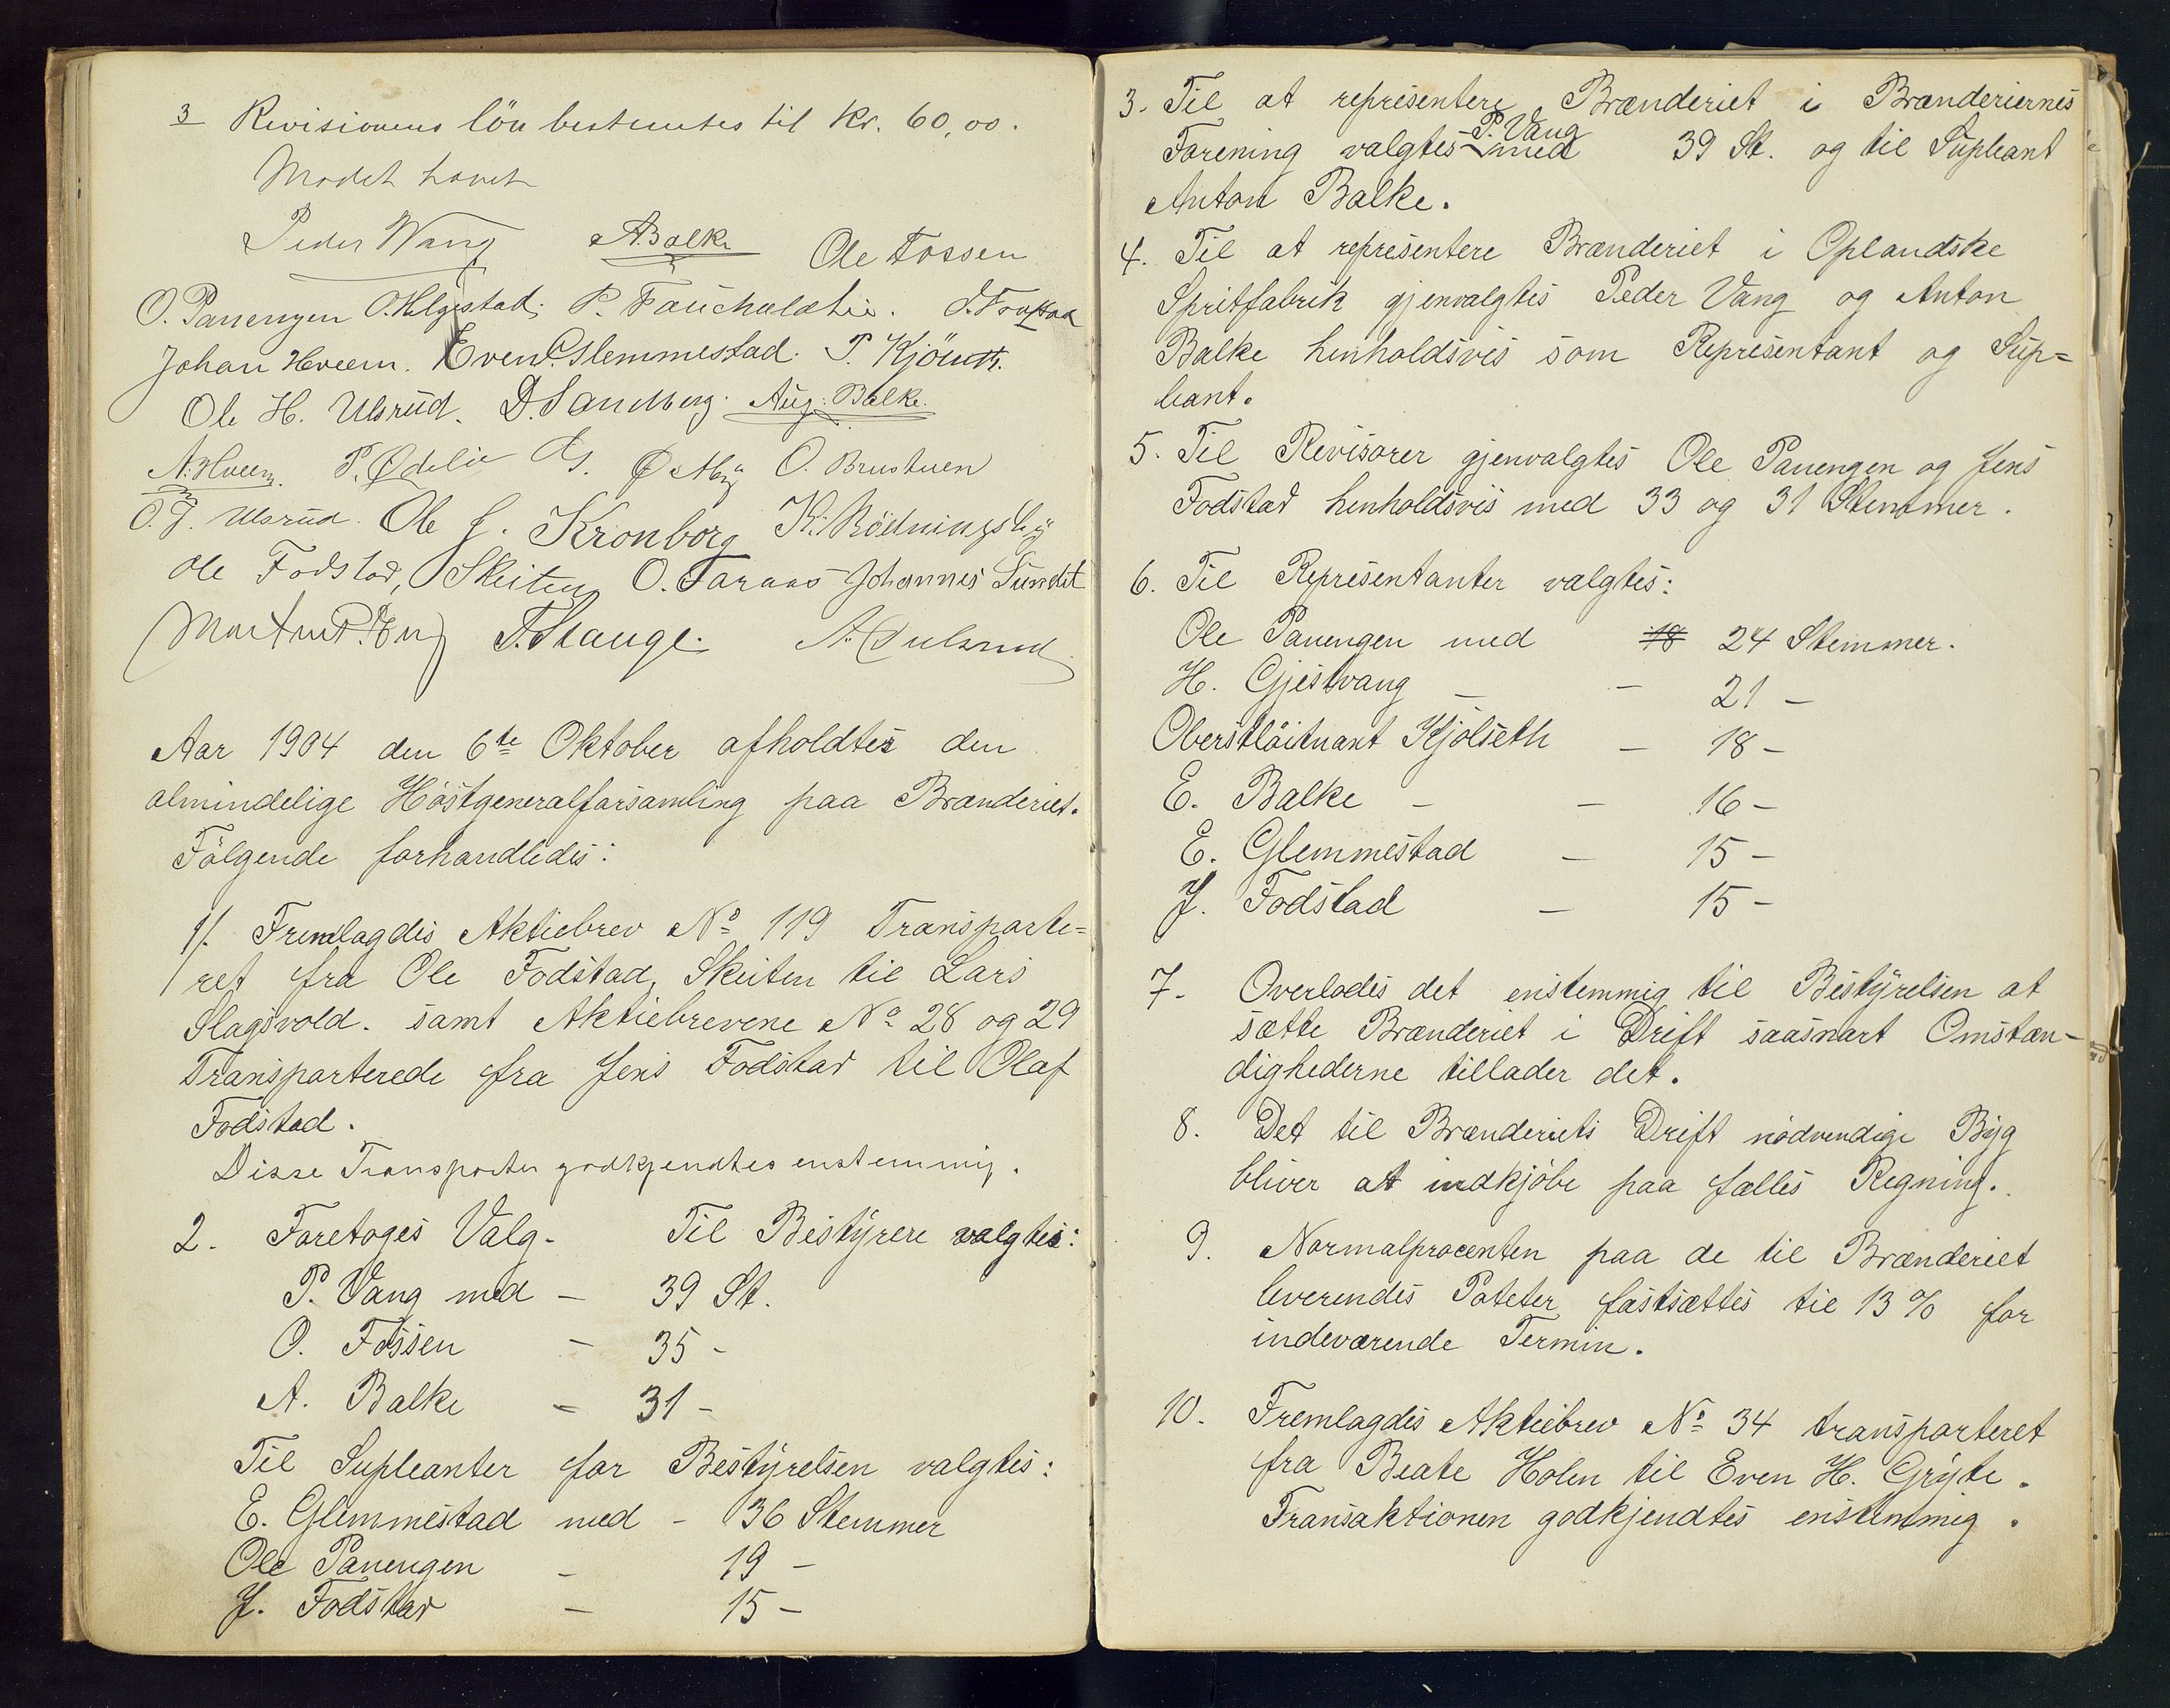 3 Revisionens lön bestemtes til Kr. 60,00.
Mödet hævet
Peder Wang ABalke Ole Fossen
O. Panengen O. Helgestad. P. Fauchaldlie. J. Fodstad
Johan Hveem. Even Glemmestad. P. Kjönik.
Ole H. Ulsrud. D. Sandberg. Aug. Balke.
A. Hveem. P. Ødelie O. Brustuen
O. J. Ulsrud. Ole J. Kronborg K. Rödningsby
Ole Fodstad, Skeiten O. Faraas Johannes Sundet
Martin P. Eng T. Stange. A.
Aar 1904 den 6te Oktober afholdtes den
almindelige Höstgeneralforsamling paa Brænderiet.
Fölgende forhandledes:
1/. Fremlagdes Aktiebrev No 119 Transporte=
ret fra Ole Fodstad, Skeiten til Lars
Slagsvold. samt Aktiebrevene No 28 og 29
Transporterede fra Jens Fodstad til Olaf
Fodstad.
Disse Transporter godkjendtes enstemmig.
2. Foretoges Valg. Til Bestÿrere valgtes:
P. Vang med - 39 St.
O. Fossen - 35 -
A. Balke - 31 -
Til Supleanter for Bestÿrelsen valgtes:
E. Glemmestad med - 36 Stemmer
Ole Panengen - 19 -
J. Fodstad - 15 -
3. Til at representere Brænderiet i Brænderiernes
Forening valgtes P. Vang med 39 St. og til Supleant
Anton Balke.
4. Til at representere Brænderiet i Oplandske
Spritfabrik gjenvalgtes Peder Vang og Anton
Balke henholdsvis som Representant og Sup=
leant.
5. Til Revisorer gjenvalgtes Ole Panengen og Jens
Fodstad henholdsvis med 33 og 31 Stemmer.
6. Til Representanter valgtes:
Ole Panengen med 18 24 Stemmer.
H. Gjestvang - - 21 -
Oberstlöitnant Kjölseth - 18 -
E. Balke - - 16 -
E. Glemmestad - 15 -
J. Fodstad - 15 -
7. Overlodes det enstemmig til Bestÿrelsen at
sætte Brænderiet i Drift saasnart Omstæn-
dighederne tillader det.
8. Det til Brænderiets Drift nödvendige Bÿg
bliver at indkjöbe paa fælles Regning.
9. Normalprocenten paa de til Brænderiet
leverendes Poteter fastsættes til 13 % for
indeværende Termin.
10. Fremlagdes Aktiebrev No 34 transporteret
fra Beate Holen til Even H. Grÿte.
Transaktionen godkjendtes enstemmig.